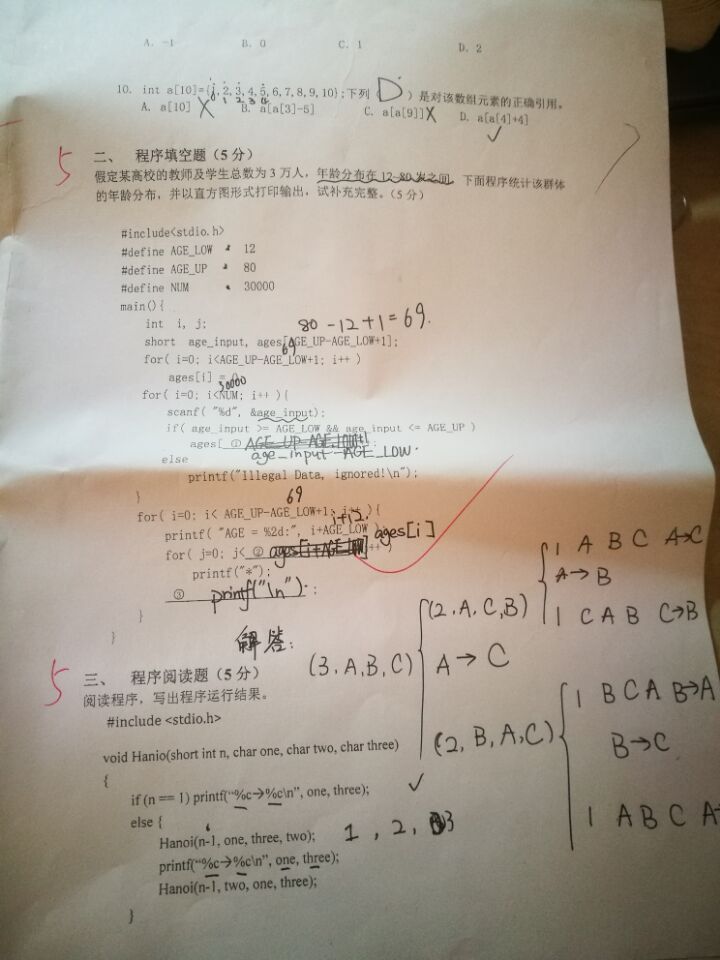 A. -1 B. 0 C. 1 D. 2
10. int a[10]={1,2,3,4,5,6,7,8,9,10};下列( D )是对该数组元素的正确引用。
0 1 2 3 4
A. a[10] X B. a[a[3]-5] C. a[a[9]] X D. a[a[4]+4] ✓
5
二、 程序填空题(5 分)
假定某高校的教师及学生总数为 3 万人，年龄分布在 12-80 岁之间，下面程序统计该群体
的年龄分布，并以直方图形式打印输出，试补充完整。(5 分)
#include<stdio.h>
#define AGE_LOW 12
#define AGE_UP 80
#define NUM 30000
main(){
int i, j;
80-12+1=69.
short age_input, ages[AGE_UP-AGE_LOW+1];
69
for( i=0; i<AGE_UP-AGE_LOW+1; i++ )
ages[i] = 0;
30000
for( i=0; i<NUM; i++ ){
scanf( "%d", &age_input);
if( age_input >= AGE_LOW && age_input <= AGE_UP )
ages[ ① AGE_UP-AGE_LOW+1
age_input-AGE_LOW.
else
printf("Illegal Data, ignored!\n");
}
69
for( i=0; i< AGE_UP-AGE_LOW+1; i++ ){
i+12.
printf( "AGE = %2d:", i+AGE_LOW );
ages[i]
for( j=0; j< ② ages[i+AGE_LOW] ++ )
printf("*");
③ printf("\n") ;
}
}
解答:
5
三、 程序阅读题(5 分)
阅读程序，写出程序运行结果。
#include <stdio.h>
void Hanio(short int n, char one, char two, char three)
{
if (n == 1) printf("%c→%c\n", one, three);
else {
Hanoi(n-1, one, three, two);
printf("%c→%c\n", one, three);
Hanoi(n-1, two, one, three);
}
✓
1, 2, 3
(3,A,B,C)
(2,A,C,B)
A→C
(2,B,A,C)
1 A B C A→C
A→B
1 C A B C→B
1 B C A B→A
B→C
1 A B C A→